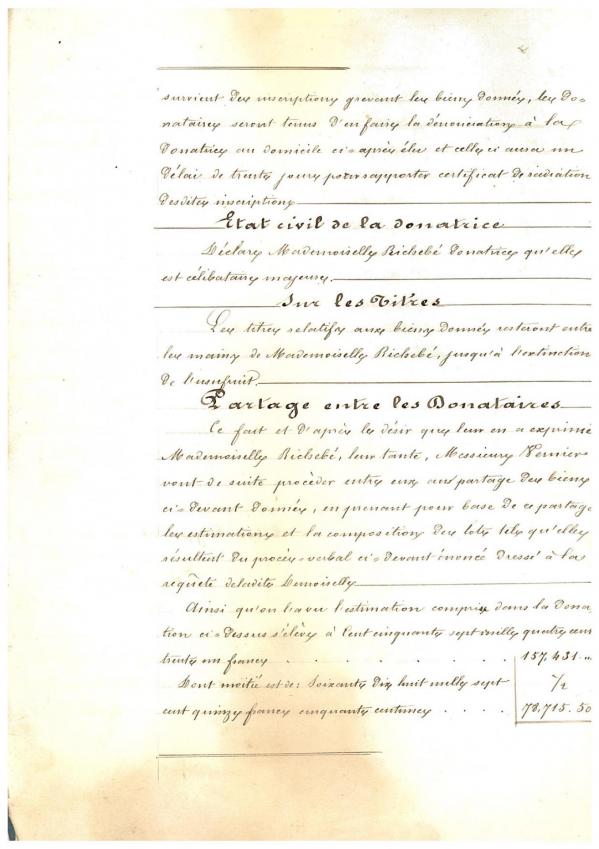 survient des inscriptions grevant les biens donnés, les do-
nataires seront tenus d'en faire la dénonciation à la
Donatrice au domicile ci-après élu et celle ci aura un
Délai de trente jours pour rapporter certificat de radiation
desdites inscriptions
Etat civil de la donatrice
Déclare Mademoiselle Richebé Donatrice qu'elle
est célibataire majeure.
Sur les Titres
Les titres relatifs aux biens donnés resteront entre
les mains de Mademoiselle Richebé, jusqu'à l'extinction
de l'usufruit.
Partage entre les Donataires
Ce fait et d'après le désir que leur en a exprimé
Mademoiselle Richebé, leur tante, Messieurs Vernier
vont de suite procéder entre eux au partage des biens
ci-devant donnés, en prenant pour base de ce partage
les estimations et la composition des lots tels qu'elles
résultent du procès-verbal ci-devant énoncé dressé à la
requête de ladite Demoiselle
Ainsi qu'on l'a vu l'estimation comprise dans la Dona
tion ci-dessus s'élève à Cent cinquante sept mille quatre cent
trente un francs . . . . . . . 157,431 "
Dont moitié est de: Soixante Dix huit mille sept ½
cent quinze francs cinquante centimes . . . . 78,715.50